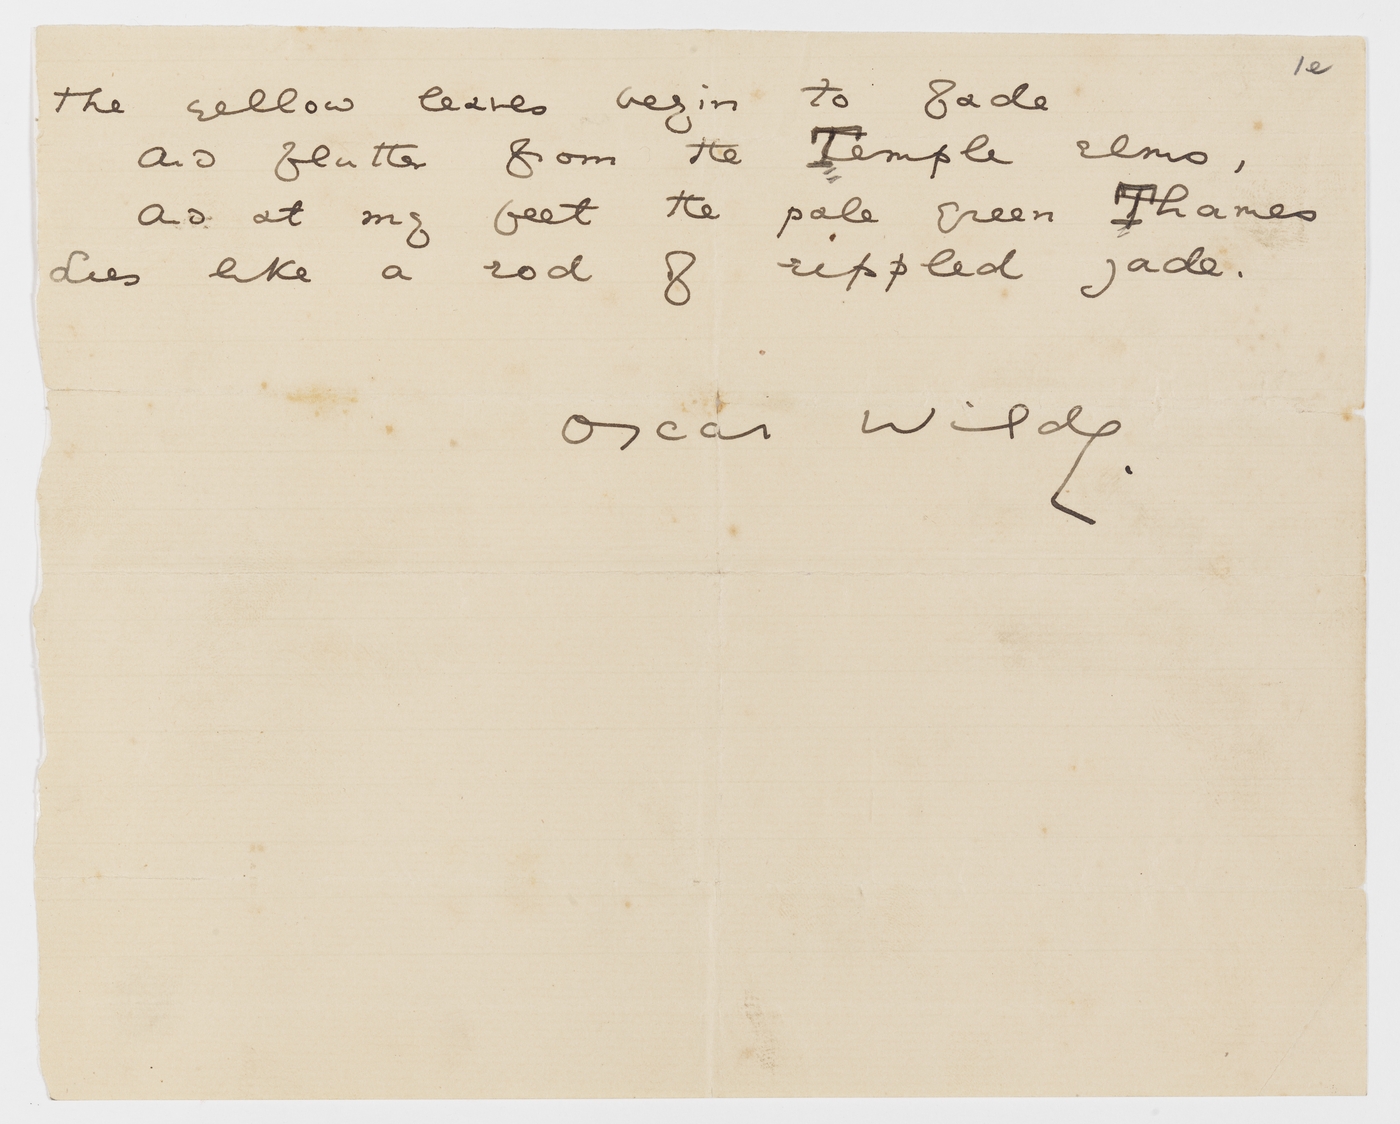 1e
The yellow leaves begin to fade
And flutter from the Temple elms,
And at my feet the pale green Thames
Lies like a rod of rippled jade.
Oscar Wilde.